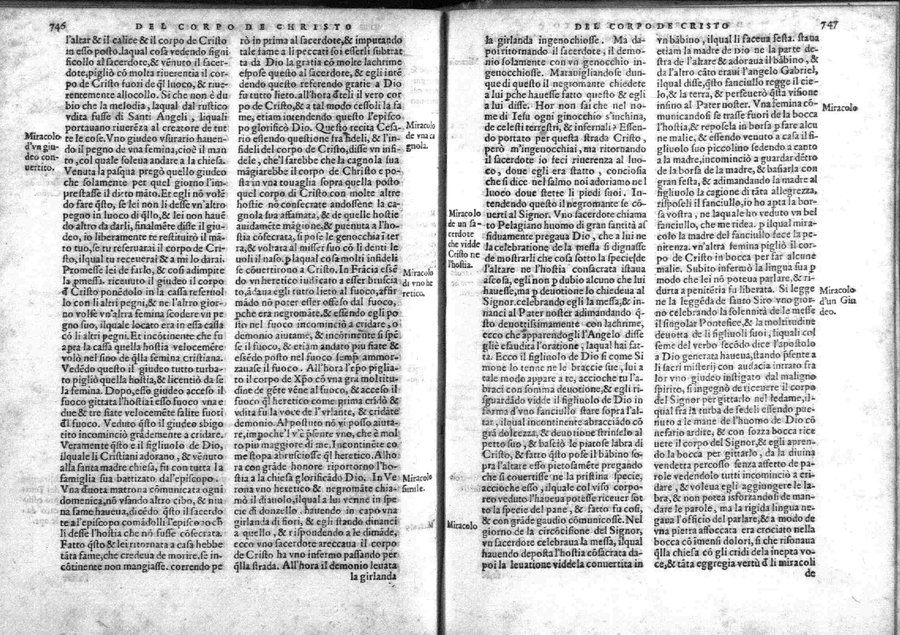 746 DEL CORPO DE CHRISTO
l'altar & il calice & il corpo de Cristo
in esso posto, laqual cosa vedendo signi
ficollo al sacerdote, & vēnuto il sacer-
dote, pigliò cō molta riuerentia il cor-
po de Cristo fuori de q̄l luoco, & riue-
rentemente allocollo. Si che non è du
bio che la melodia, laqual dal rustico
vdita fusse di Santi Angeli, liquali
portauano riuerēza al creatore de tut
te le cose. Vno giudeo vsurario hauen-
do il pegno de vna femina, cioè il man
to, col quale soleua andare a la chiesa.
Venuta la pasqua pregò quello giudeo
che solamente per quel giorno l'im-
prestasse il ditto māto. Et egli nō volē
do fare q̄sto, se lei non li desse vn'altro
pegno in luoco di q̄llo, & lei non hauē
do altro da darli, finalmēte disse il giu-
deo, io liberamente te restituirò il mā
to tuo, se tu reseruarai il corpo de Cri-
sto, ilqual tu receuerai & a mi lo darai.
Promesse lei de farlo, & cosi adimpite
la pmessa. riceuuto il giudeo il corpo
d Cristo ponēdolo in la cassa reseruol
lo con li altri pegni, & ne l'altro gior-
no volse vn'altra femina scodere vn pe
gno suo, ilquale locato era in essa cassa
cō li altri pegni. Et incōtinente che fu
apta la cassa quella hostia velocemēte
volò nel sino de q̄lla femina Cristiana.
Vedēdo questo il giudeo tutto turba-
to pigliò quella hostia, & licentiò da se
la femina. Dopo, esso giudeo acceso il
fuoco gittata l'hostia i esso fuoco vna e
due & tre fiate velocemēte salite fuori
dl fuoco. Veduto questo il giudeo sbigo
tito incominciò grādemente a cridare.
Veramente q̄sto e il figliuolo de Dio,
ilquale li Cristiani adorano, & vēnuto
alla santa madre chiesa, fu con tutta la
famiglia sua battizato dall'episcopo.
Vna diuota matrona cōmunicata ogni
domenica, nō vsando altro cibo, & niu
na fame haueua, dicēdo q̄sto il sacerdo
te al episcopo comādolli l'episcopo ch
li desse l'hostia che nō fusse cōsecrata.
Fatto q̄sto & lei ritornata a casa hebbe
tāta fame, che credeua de morire, se in-
cōtinente non mangiasse. correndo pe
Miracolo
d'vn giu
deo con-
uertito.
rò in prima al sacerdote, & imputando
tale fame a li peccati soi esserli subtrat
ta da Dio la gratia cō molte lachrime
espose questo al sacerdote, & egli intē
dendo questo referendo gratie a Dio
fu tutto lieto. all'hora detli il vero cor
po de Cristo, & a tal modo cessoli la fa
me, etiam intendendo questo l'episco
po glorificò Dio. Questo recita Cesa-
rio essendo questione fra fideli, & l'in-
fideli del corpo de Cristo, disse vn infi-
dele, che'l sarebbe che la cagnola sua
māgiarebbe il corpo de Christo e pos-
ta in vna touaglia sopra quella posto
quel corpo di Cristo, con molte altre
hostie nō consecrate andossene la ca-
gnola sua affamata, & de quelle hostie
auidamēte māgione, & puenuta a l'ho
stia cōsecrata, si pose le genocchia i ter
ra, & voltata al misser suo cō li denti le
uoli il naso. p laqual cosa molti infideli
se cōuertirono a Cristo. In Frācia essē
do vn heretico iusticiato a esser brusciа
to, ādaua egli tutto lieto al fuoco, affir
mādo nō poter esser offeso dal fuoco,
pche era negromāte, & essendo egli po
sto nel fuoco incominciò a cridare, o
demonio aiutame, & incōtinente si spē
se il fuoco, & etiām andato piu fiate &
essēdo posto nel fuoco semp ammor-
zauase il fuoco. All'hora l'epō piglia-
to il corpo de Xp̄o cō vna gra moltitu
dine de gēte vēne al fuoco, & acceso il
fuoco q̄l heretico come prima cridò &
vdita fu la voce de l'vrlante, & cridāte
demonio. Al postuto nō vi posso aiuta-
re, impoche'l v'è p̄sente vno, che è mol
to piu maggiore di me. Incontinēte co
me stopa abrusciosse q̄l heretico. Alho
ra con grāde honore riportorno l'ho-
stia a la chiesa glorificādo Dio. In Ve
rona vno heretico & negromāte chia-
mò il diauolo, ilqual a lui venne in spe
cie di donzello. hauendo in capo vna
girlanda di fiori, & egli stando dinanci
a quello, & rispondendo a le dimāde,
ecco vno sacerdote areccaua il corpo
de Cristo ha vno infermo passando per
q̄lla strada. All'hora il demonio leuata
la girlanda
Miracolo
de vna ca
gnola.
Miracolo
di vno he
retico.
Miracolo
simile.
DEL CORPO DE CRISTO 747
la girlanda ingenochiosse. Ma da-
poi ritornando il sacerdote, il demo-
nio solamente con va genocchio in-
genochiosse. Marauigliandose dun-
que di questo il negromante chiedete
a lui pche hauesse fatto questo & egli
a lui disse. Hor non sai che nel no
me di Iesu ogni ginocchio s'inchina,
de celesti terrestri, & infernali? Essen-
do portato per questa strada Cristo,
però m'ingenocchiai, ma ritornando
il sacerdote io feci riuerenza al luo-
co, doue egli era stato, conciosia
che si dice nel salmo noi adoriamo nel
luoco doue stette li piedi suoi. In-
tendendo questo il negromante se cō
uertì al Signor. Vno sacerdote chiama
to Pelagiano huomo di gran santità af
sidnamente pregaua Dio, che a lui ne
la celebratione de la messa si dignasse
de mostrarli che cosa sotto la specie de
l'altare ne l'hostia consacrata istaua
ascosa, egli non p dubio alcuno che lui
hauesse, ma p deuotione lo chiedeua al
Signor. celebrando egli la messa, & in-
nanci al Pater noster adimandando q̄-
sto deuottissimamente con lachrime,
ecco che apparendogli l'Angelo disse
gliè esaudita l'oratione, laqual hai fat-
ta. Ecco il figliuolo de Dio si come Si
mone lo tenne ne le braccie sue, lui a
tale modo appare a te, accioche tu l'a-
bracci con somma deuotione, & egli ri
sguardādo vidde il figliuolo de Dio in
forma d'vn fanciullo stare sopra l'al-
tar, ilqual incontinente abracciādo cō
grā dolcezza, & deuotione strinselo al
petto suo, & basciò le piatose labra di
Cristo, & fatto q̄sto pose il bābino so-
pra l'altare esso pietosamēte pregando
che si couertisse ne la pristina specie,
accioche esso, ilquale col visiuo corpo-
reo veduto l'haueua potesse riceuer sot
to la specie del pane, & fatto fu cosi,
& con grāde gaudio cōmunicosse. Nel
giorno de la circōcisione del Signor,
vn sacerdote celebraua la messa, ilqual
hauendo deposta l'hostia cōsacrata da-
poi la leuatione viddela conuertita in
Miracolo
de un sa-
cerdote
che vidde
Cristo ne
l'hostia.
Miracolo
vn bābino, il qual li faceua festa. Staua
etiam la madre de Dio ne la parte de-
stra de l'altare & adoraua il bābino, &
da l'altro cāto eraui l'angelo Gabriel,
il qual disse, q̄sto fanciullo regge il cie-
lo, & la terra, & perseuerò q̄sta visione
insino al Pater noster. Vna femina cō-
municandosi se trasse fuori de la bocca
l'hostia, & reposela in borsa p fare alcu
ne malie, & essendo venuto a casa il fi-
gliuolo suo piccolino sedendo a canto
a la madre, incominciò a guardar dētro
de la borsa de la madre, & basiarla con
gran festa, & adimandando la madre al
figliuolo la cagione di tāta allegrezza,
risposeli il fanciullo, io ho apta la bor-
sa vostra, ne laquale ho veduto vn bel
fanciullo, che me ridea. p ilqual mira-
colo la madre del fanciullo fece la pe-
nitenza. vn'altra femina pigliò il cor-
po de Cristo in bocca per far alcune
malie. Subito infermò la lingua sua p
modo che lei nō poteua parlare, & ri-
durta a penitētia fu liberata. Si legge
ne la leggēda de santo Siro vno gior-
no celebrando la solennità de le messe
il singolar Pontefice, & la moltitudine
deuotta de li figliuoli suoi, liquali col
seme del verbo secōdo dice l'apostolo
a Dio generata haueua, stando p̄sente a
li sacri misterij con audacia intrato fra
lor vno giudeo instigato dal maligno
spirito, si ingegnò de riceuere il corpo
del Signor per gittarlo nel ledame, il-
qual fra la turba de fedeli essendo pue-
nuto a le mane de l'huomo de Dio co
nefario ardire, & con sozza bocca rice
uete il corpo del Signor, & egli apren-
do la bocca per gittarlo, da la diuina
vendetta percosso senza assetto de pa-
role vedendolo tutti incominciò a cri-
dare, & voleua egli aggiungere le la-
bra, & non potea isforzandosi de man-
dare le parole, ma la rigida lingua ne-
gaua l'officio del parlare, & a modo de
vna pietra assoccata era crociato nella
bocca cō imensi dolori, sì che risonaua
q̄lla chiesa cō gli cridi de la inepta vo-
ce, & tāta eggregia vertù d li miracoli
de
Miracolo
Miracolo
d'un Giu
deo.